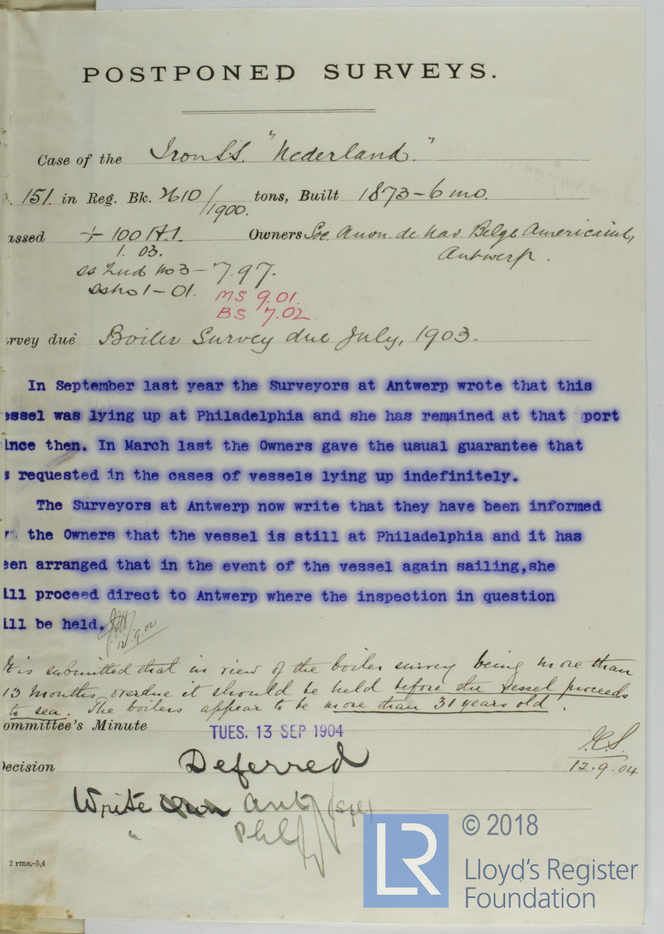 POSTPONED SURVEYS.
Case of the Iron S.S. "Nederland."
151. in Reg. Bk. 2610/1900. tons, Built 1873-6mo.
assed + 100A.1. Owners Soc. Anon. de Nav. Belge Americaine,
1. 03. Antwerp.
SS 2nd No3-7.97.
SS No 1-01. MS 9.01.
BS 7.02.
rvey due Boiler Survey due July, 1903.
In September last year the Surveyors at Antwerp wrote that this
essel was lying up at Philadelphia and she has remained at that port
ince then. In March last the Owners gave the usual guarantee that
s requested in the cases of vessels lying up indefinitely.
The Surveyors at Antwerp now write that they have been informed
the Owners that the vessel is still at Philadelphia and it has
een arranged that in the event of the vessel again sailing, she
ill proceed direct to Antwerp where the inspection in question
ill be held.
12.9.04
It is submitted that in view of the boiler survey being more than
13 months overdue it should be held before the vessel proceeds
to sea. The boilers appear to be more than 31 years old.
ommittee's Minute TUES. 13 SEP 1904
12.9.04
ecision Deferred
Write Ant
" Phil
2 rms.-5,4
LR © 2018
Lloyd's Register
Foundation